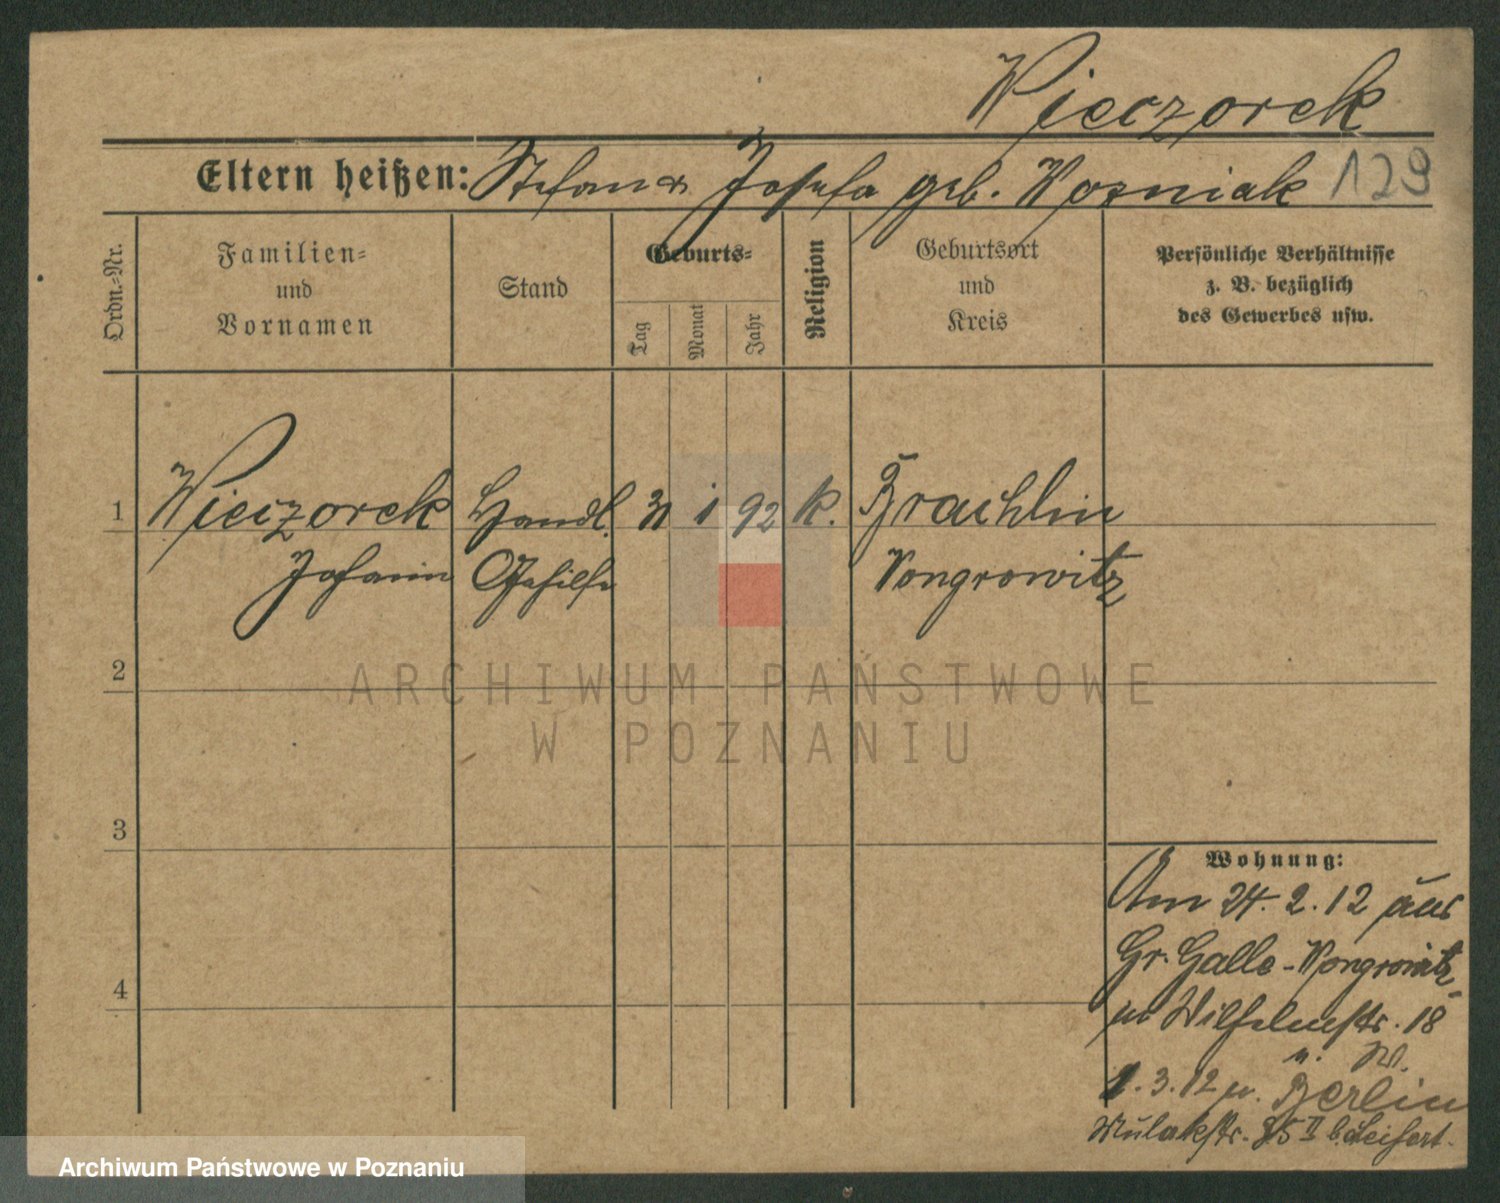 Wieczorek
Eltern heißen: Stefan u Josefa geb. Wozniak 129
Ordn.-Nr.
Familien-
und
Vornamen
Stand
Geburts-
Tag
Monat
Jahr
Religion
Geburtsort
und
Kreis
Persönliche Verhältnisse
z. B. bezüglich
des Gewerbes usw.
1 Wieczorek Handl. 31 1 92 k. Brachlin
Johann Gehilfe Wongrowitz
2
3
4
Wohnung:
Am 24. 2. 12 aus
Gr. Galle - Wongrowitz
n Wilhelmstr. 18
u. W.
1. 3. 12 n. Berlin
Mulakstr. II b. Seifert.
ARCHIWUM PAŃSTWOWE
W POZNANIU
Archiwum Państwowe w Poznaniu